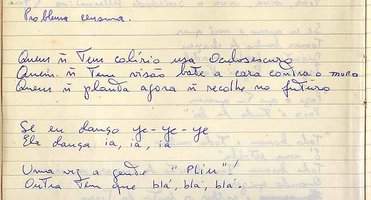 Problema censura.
Quem ñ tem colírio usa óculosescuro
Quem ñ tem visão bate a cara contra o muro
Quem ñ planta agora ñ recolhe no futuro
Se eu danço ye-ye-ye
Ela dança ia, ia, ia
Uma vez a gente "Plin"!
Outra tem que blá, blá, blá.